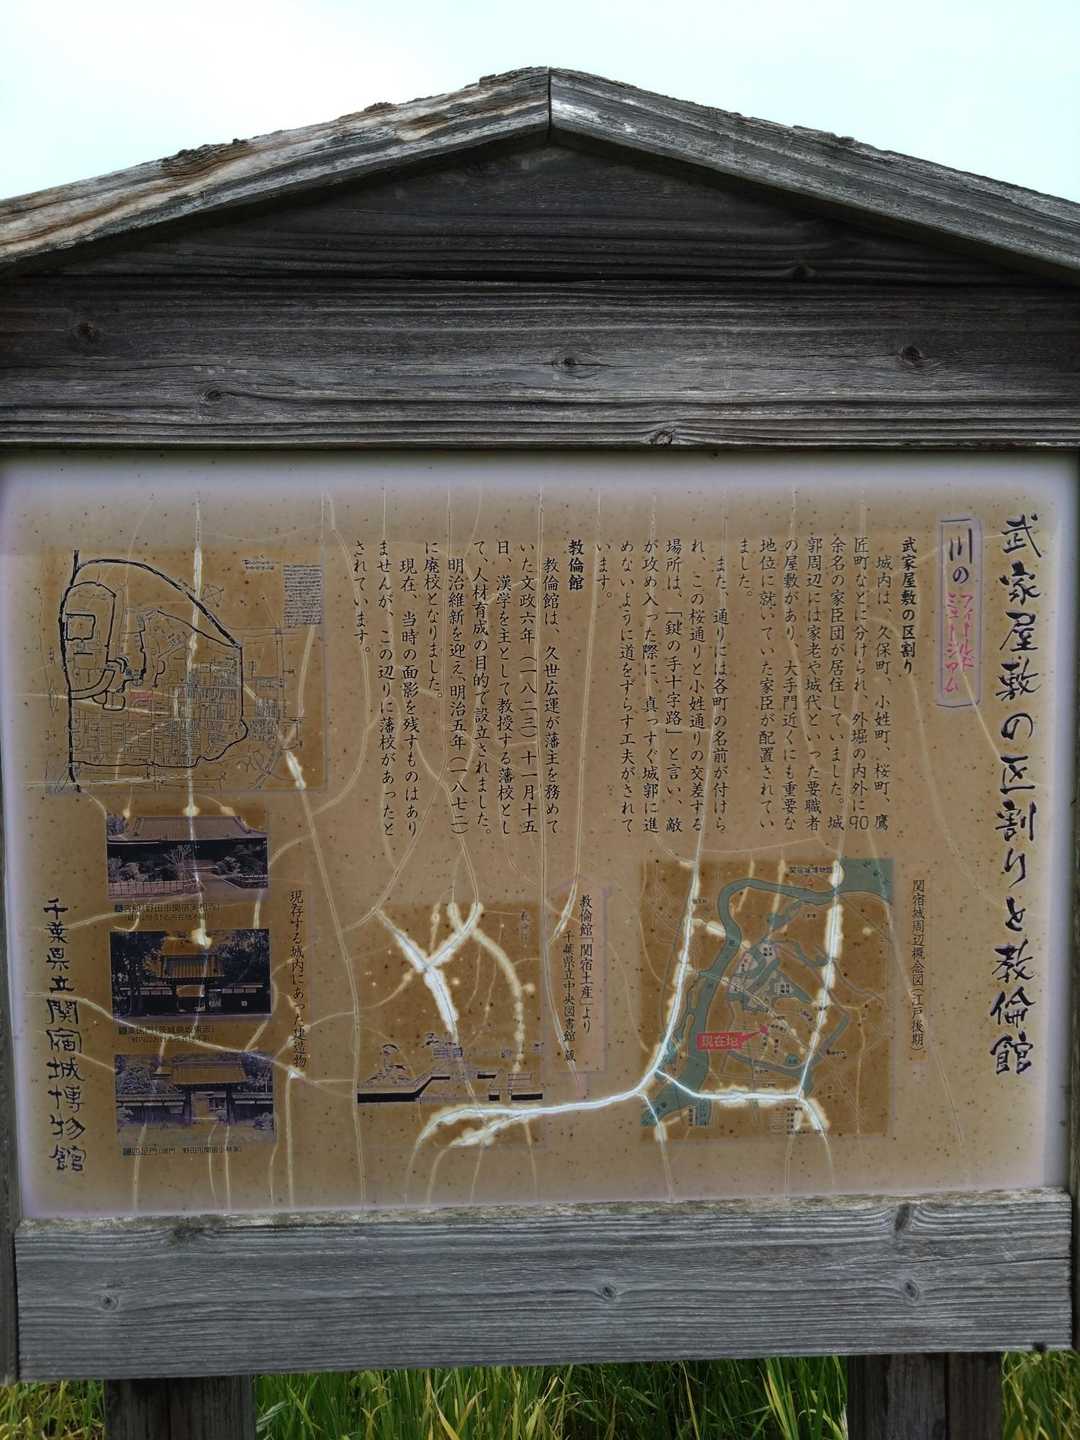 武家屋敷の区割りと教倫館
川の
フィールド
ミュージアム
武家屋敷の区割り
城内は、久保町、小姓町、桜町、鷹
匠町などに分けられ、外堀の内外に90
余名の家臣団が居住していました。城
郭周辺には家老や城代といった要職者
の屋敷があり、大手門近くにも重要な
地位に就いていた家臣が配置されてい
ました。
また、通りには各町の名前が付けら
れ、この桜通りと小姓通りの交差する
場所は、「鍵の手十字路」と言い、敵
が攻め入った際に、真っすぐ城郭に進
めないように道をずらす工夫がされて
います。
教倫館
教倫館は、久世広運が藩主を務めて
いた文政六年（一八二三）十一月十五
日、漢学を主として教授する藩校とし
て、人材育成の目的で設立されました。
明治維新を迎え、明治五年（一八七二）
に廃校となりました。
現在、当時の面影を残すものはあり
ませんが、この辺りに藩校があったと
されています。
関宿城周辺概念図（江戸後期）
関宿城博物館
現在地
教倫館「関宿土産」より
千葉県立中央図書館 蔵
現存する城内にあった建造物
千葉県立関宿城博物館